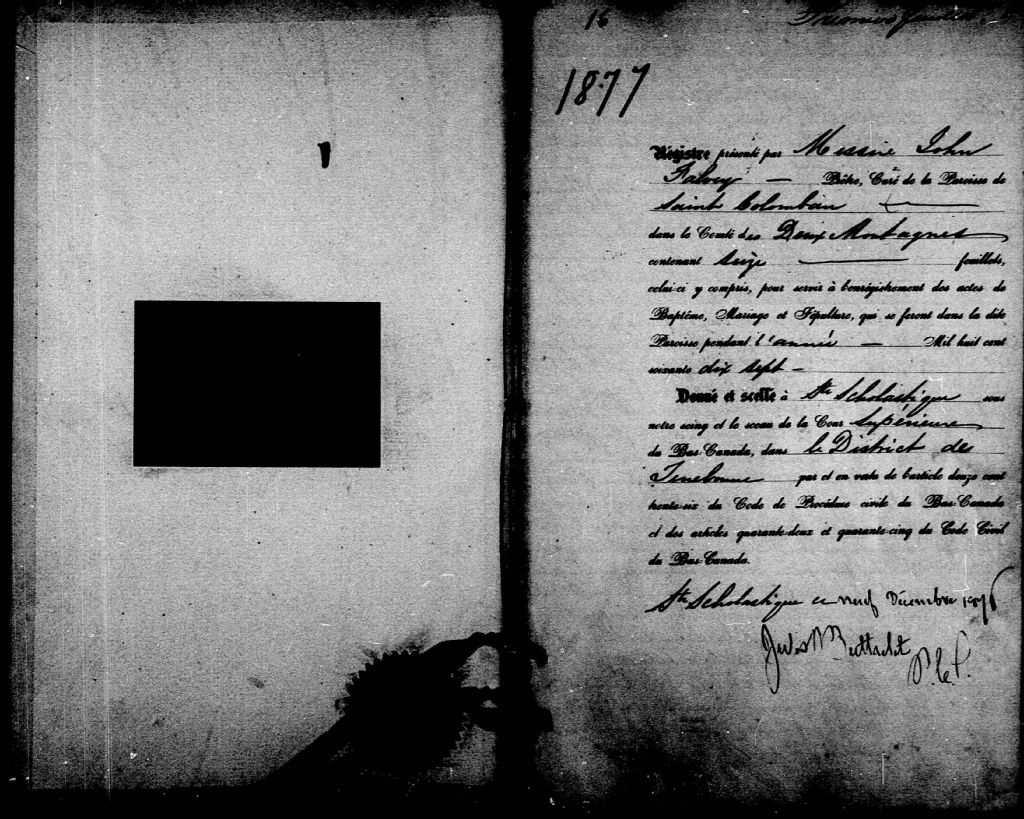 16
1877
Registre présenté par Messire John
Falvey — Prêtre, Curé de la Paroisse de
Saint Colomban
dans le Comté des Deux Montagnes
contenant seize — feuillets,
celui-ci y compris, pour servir à l'enrégistrement des actes de
Baptême, Mariage et Sépulture, qui se feront dans la dite
Paroisse pendant l'année — Mil huit cent
soixante dix sept —
Donné et scellé à Ste Scholastique sous
notre seing et le sceau de la Cour Supérieure
du Bas-Canada, dans le District de
Terrebonne par et en vertu de l'article douze cent
trente-six du Code de Procédure civile du Bas-Canada
et des articles quarante-deux et quarante-cinq du Code Civil
du Bas-Canada.
Ste Scholastique ce neuf Décembre 1876
Jules